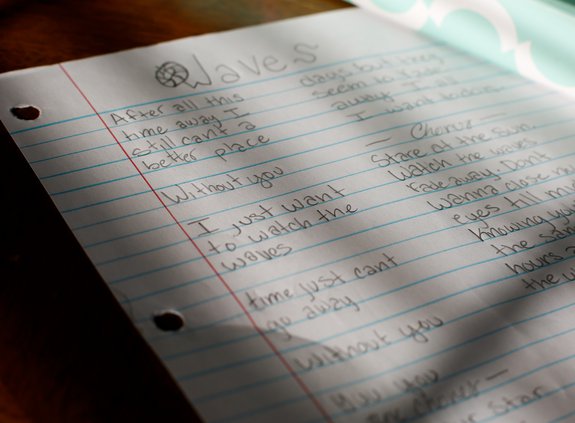 Waves
After all this
time away I
still can't a
better place
Without you
I just want
to watch the
waves
time just cant
go away
without you
you
days but they
seem to fade
away I all
I want to
— Chorus —
Stare at the sun.
Watch the waves
fade away. Dont
wanna close
eyes till
knowing
the
hours
the
star